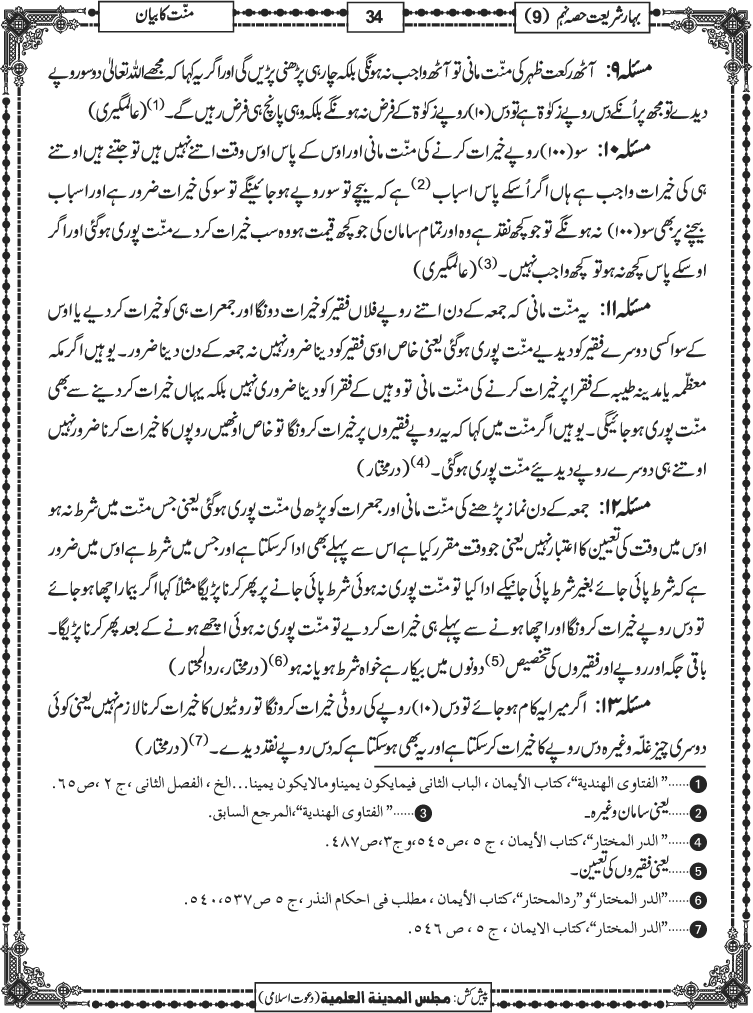 بہار شریعت حصہ نہم (9)
34
منّت کا بیان
مسئلہ ۹: آٹھ رکعت ظہر کی منّت مانی تو آٹھ واجب نہ ہونگی بلکہ چار ہی پڑھنی پڑیں گی اور اگر یہ کہا کہ مجھے اللہ تعالیٰ دو سو روپے
دیدے تو مجھ پر اُنکے دس روپے زکوٰۃ ہے تو دس (۱۰) روپے زکوٰۃ کے فرض نہ ہونگے بلکہ وہی پانچ ہی فرض رہیں گے۔(1) (عالمگیری)
مسئلہ ۱۰: سو (۱۰۰) روپے خیرات کرنے کی منّت مانی اور اوس کے پاس اوس وقت اتنے نہیں ہیں تو جتنے ہیں اوتنے
ہی کی خیرات واجب ہے ہاں اگر اُسکے پاس اسباب (2) ہے کہ بیچے تو سو روپے ہو جائینگے تو سو کی خیرات ضرور ہے اور اسباب
بیچنے پر بھی سو (۱۰۰) نہ ہونگے تو جو کچھ نقد ہے وہ اور تمام سامان کی جو کچھ قیمت ہو وہ سب خیرات کر دے منّت پوری ہو گئی اور اگر
اوسکے پاس کچھ نہ ہو تو کچھ واجب نہیں۔(3) (عالمگیری)
مسئلہ ۱۱: یہ منّت مانی کہ جمعہ کے دن اتنے روپے فلاں فقیر کو خیرات دونگا اور جمعرات ہی کو خیرات کر دیے یا اوس
کے سوا کسی دوسرے فقیر کو دیدیے منّت پوری ہو گئی یعنی خاص اوسی فقیر کو دینا ضرور نہیں نہ جمعہ کے دن دینا ضرور۔ یوہیں اگر مکہ
معظّمہ یا مدینہ طیبہ کے فقرا پر خیرات کرنے کی منّت مانی تو وہیں کے فقرا کو دینا ضروری نہیں بلکہ یہاں خیرات کر دینے سے بھی
منّت پوری ہو جائیگی۔ یوہیں اگر منّت میں کہا کہ یہ روپے فقیروں پر خیرات کرونگا تو خاص اونھیں روپوں کا خیرات کرنا ضرور نہیں
اوتنے ہی دوسرے روپے دیدیئے منّت پوری ہو گئی۔(4) (درمختار)
مسئلہ ۱۲: جمعہ کے دن نماز پڑھنے کی منّت مانی اور جمعرات کو پڑھ لی منّت پوری ہو گئی یعنی جس منّت میں شرط نہ ہو
اوس میں وقت کی تعیین کا اعتبار نہیں یعنی جو وقت مقرر کیا ہے اس سے پہلے بھی ادا کر سکتا ہے اور جس میں شرط ہے اوس میں ضرور
ہے کہ شرط پائی جائے بغیر شرط پائی جانیکے ادا کیا تو منّت پوری نہ ہوئی شرط پائی جانے پر پھر کرنا پڑیگا مثلاً کہا اگر بیمار اچھا ہو جائے
تو دس روپے خیرات کرونگا اور اچھا ہونے سے پہلے ہی خیرات کر دیے تو منّت پوری نہ ہوئی اچھے ہونے کے بعد پھر کرنا پڑیگا۔
باقی جگہ اور روپے اور فقیروں کی تخصیص (5) دونوں میں بیکار ہے خواہ شرط ہو یا نہ ہو۔(6) (درمختار، ردالمحتار)
مسئلہ ۱۳: اگر میرا یہ کام ہو جائے تو دس (۱۰) روپے کی روٹی خیرات کرونگا تو روٹیوں کا خیرات کرنا لازم نہیں یعنی کوئی
دوسری چیز غلّہ وغیرہ دس روپے کا خیرات کر سکتا ہے اور یہ بھی ہو سکتا ہے کہ دس روپے نقد دیدے۔(7) (درمختار)
1 ......"الفتاوی الهندية"، کتاب الأيمان ، الباب الثانی فيمايکون يميناومالايکون يمينا...الخ ، الفصل الثانی ،ج ۲ ،ص٦٥.
2 ......یعنی سامان وغیرہ۔ 3 ......" الفتاوی الهندية"،المرجع السابق.
4 ......" الدر المختار"،کتاب الأيمان ، ج ٥ ،ص٥٤٥،وج٣،ص٤٨٧.
5 ......یعنی فقیروں کی تعیین۔
6 ......"الدر المختار"و"ردالمحتار"،کتاب الأيمان ، مطلب فی احکام النذر ،ج ٥ ص٥٣٧،٥٤٠.
7 ......"الدر المختار"، کتاب الايمان ، ج ٥ ، ص ٥٤٦.
پیش کش: مجلس المدينة العلمية (دعوت اسلامی)